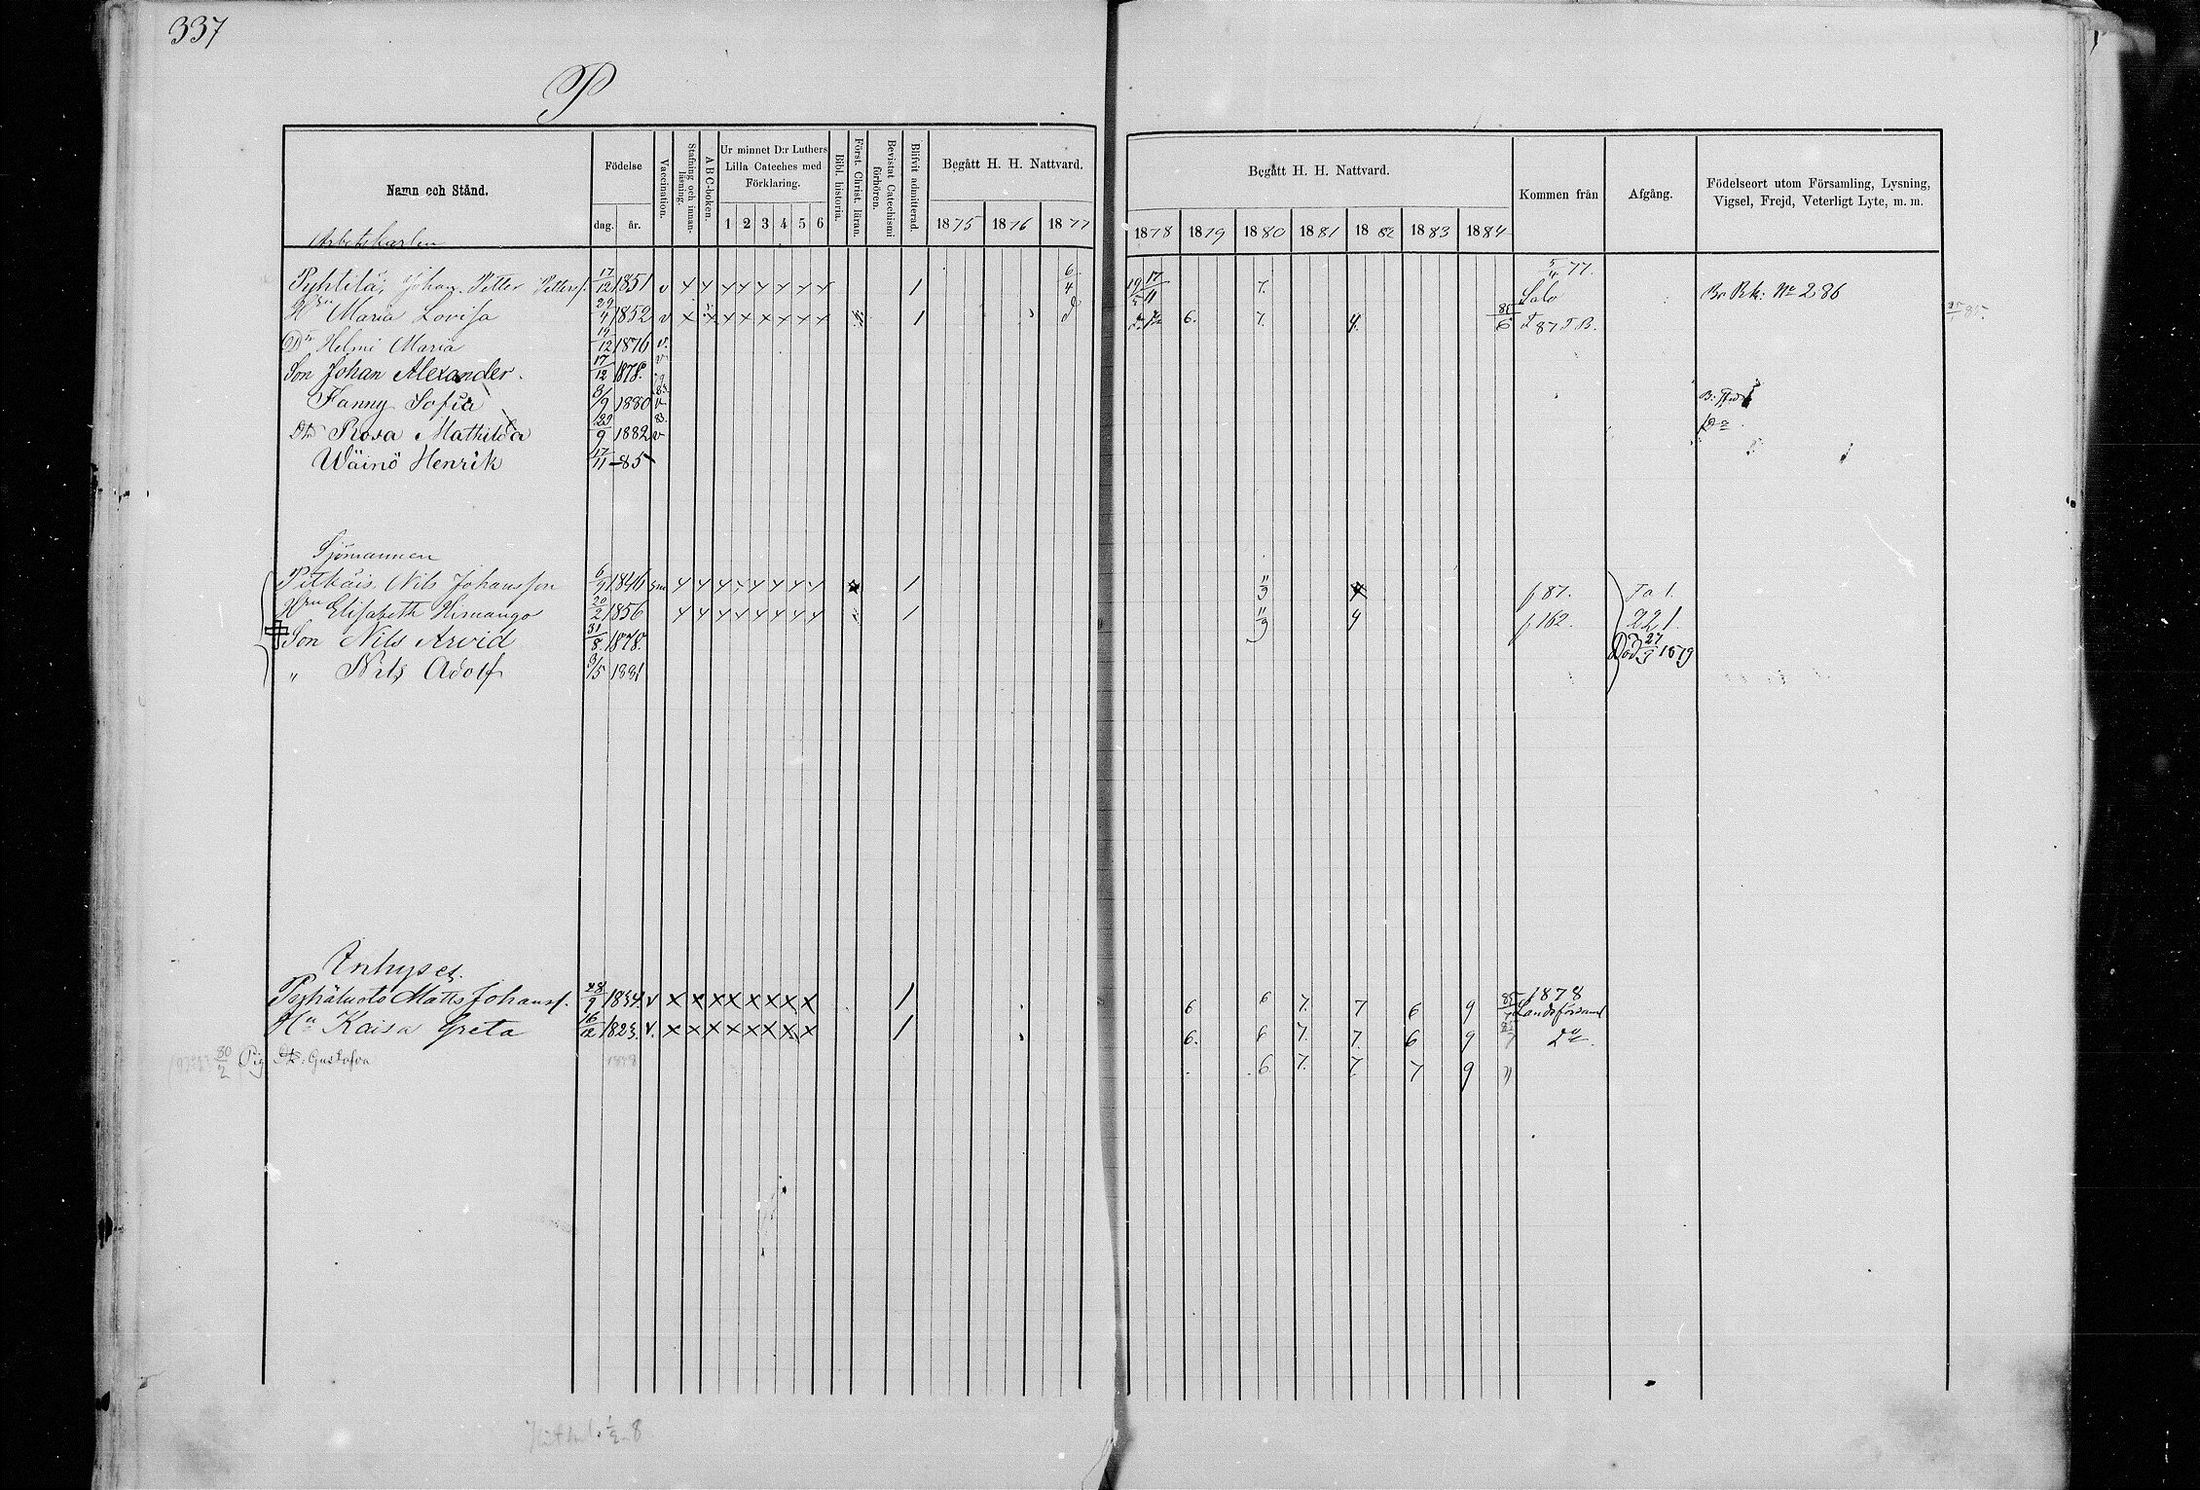 337
P
Namn och Stånd.
Födelse
dag. år.
Vaccination.
Stafning och innan-läsning.
ABC-boken.
Ur minnet D:r Luthers Lilla Cateches med Förklaring.
1 2 3 4 5 6
Bibl. historia.
Först. Christ. läran.
Bevistat Catechismi förhören.
Blifvit admitterad.
Begått H. H. Nattvard.
1875 1876 1877
Begått H. H. Nattvard.
1878 1879 1880 1881 1882 1883 1884
Kommen från
Afgång.
Födelseort utom Församling, Lysning, Vigsel, Frejd, Veterligt Lyte, m. m.
Arbetskarlen
Pyhtilä, Johan Petter Petterss. 17/12 1851 v x x x x x x x x 1 6/4 19/5 17/11 7. 5/4 77. Salo Br Bk: No 286
Hru Maria Lovisa 29/4 1852 v x x x x x x x x 1 6. 7. 4. 85/6
Dr Helmi Maria 19/12 1876 v.
Son Johan Alexander. 17/12 1878. v
Fanny Sofia 3/9 1880 v
Dr Rosa Mathilda 23/9 1882 v
Wäinö Henrik 17/11 -85
Sjömannen
Pitkäis Nils Johansson 6/9 1846 x x x x x x x x 1 11/9 4 f 87. Fa 1.
Hru Elisabeth Himango 20/2 1856 x x x x x x x x 1 11/9 4 f 162. 221
Son Nils Arvid 31/8 1878. Död 27/9 1879
" Nils Adolf 3/5 1881
Inhyses.
Pyhäluoto Matts Johanss. 28/9 1834. v x x x x x x x x 1 6 6 7. 7 6 9 85/7 1878 Landsförsaml
Hu Kaisa Greta 16/12 1823. v. x x x x x x x x 1 6. 6 7. 7. 6 9 do.
30/2 Pig Dr: Gustafva 1848 6 7. 7. 7 9